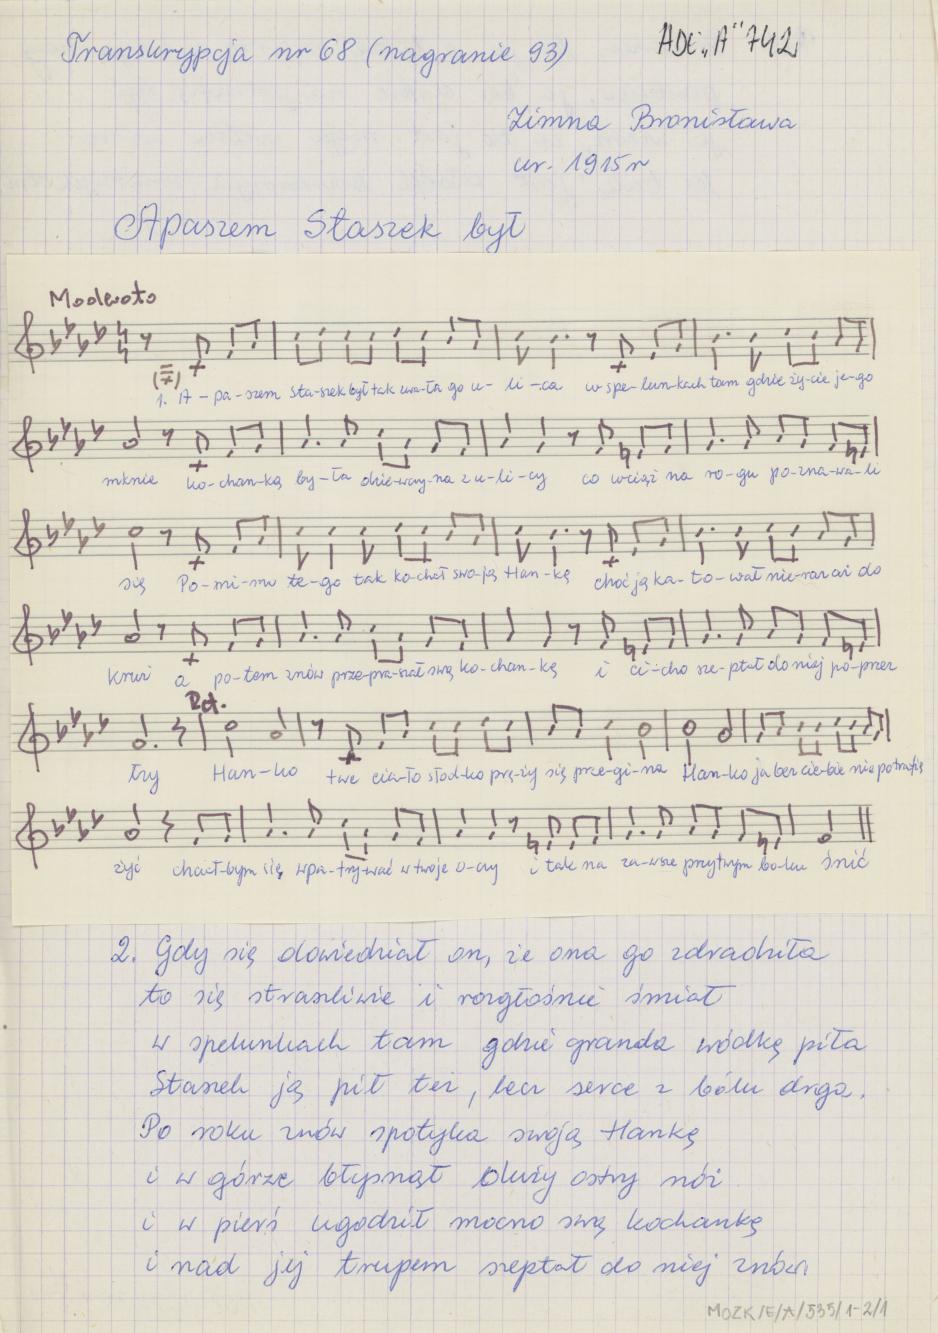 Transkrypcja nr 68 (nagranie 93)
ADE „A" 742
Zimna Bronisława
ur. 1915 r
Apaszem Staszek był
Moderato
1. A - pa - szem sta-szek był tak uwa-ża go u - li - ca w spe-lun-kach tam gdzie ży-cie je-go
mknie ko-chan-ką by-ła dziew-czy-na z u-li-cy co wciąż na ro-gu po-zna-wa-li
się Po-mi-mo te-go tak ko-chał swo-ją Han-kę choć ją ka-to-wał nie-raz aż do
krwi a po-tem znów prze-pra-szał swą ko-chan-kę i ci-cho sze-ptał do niej po-przez
Rit.
łzy Han-ko twe cia-ło słod-ko prę-ży się prze-gi-na Han-ko ja bez cie-bie nie potrafię
żyć chciał-bym się wpa-try-wać w twoje o-czy i tak na za-wsze przy twym bo-ku śnić
2. Gdy się dowiedział on, że ona go zdradziła
to się straszliwie i rozgłośnie śmiał
w spelunkach tam gdzie granda wódkę piła
Staszek ją pił też, lecz serce z bólu drga.
Po roku znów spotyka swoją Hankę
i w górze błysnął duży ostry nóż
i w pierś ugodził mocno swą kochankę
i nad jej trupem szeptał do niej znów
MOZK/E/A/535/1-2/1